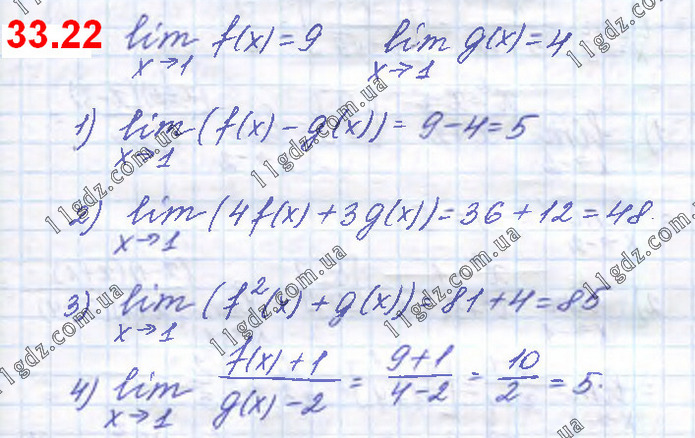 33.22 lim x→1 f(x) = 9 lim x→1 g(x) = 4
1) lim x→1 (f(x) - g(x)) = 9 - 4 = 5
2) lim x→1 (4f(x) + 3g(x)) = 36 + 12 = 48.
3) lim x→1 (f²(x) + g(x)) = 81 + 4 = 85
4) lim x→1 (f(x) + 1)/(g(x) - 2) = (9 + 1)/(4 - 2) = 10/2 = 5.
11gdz.com.ua
11gdz.com.ua
11gdz.com.ua
11gdz.com.ua
11gdz.com.ua
11gdz.com.ua
11gdz.com.ua